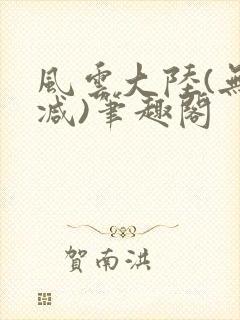 風雲大陸(無
減)筆趣閣
賀南洪